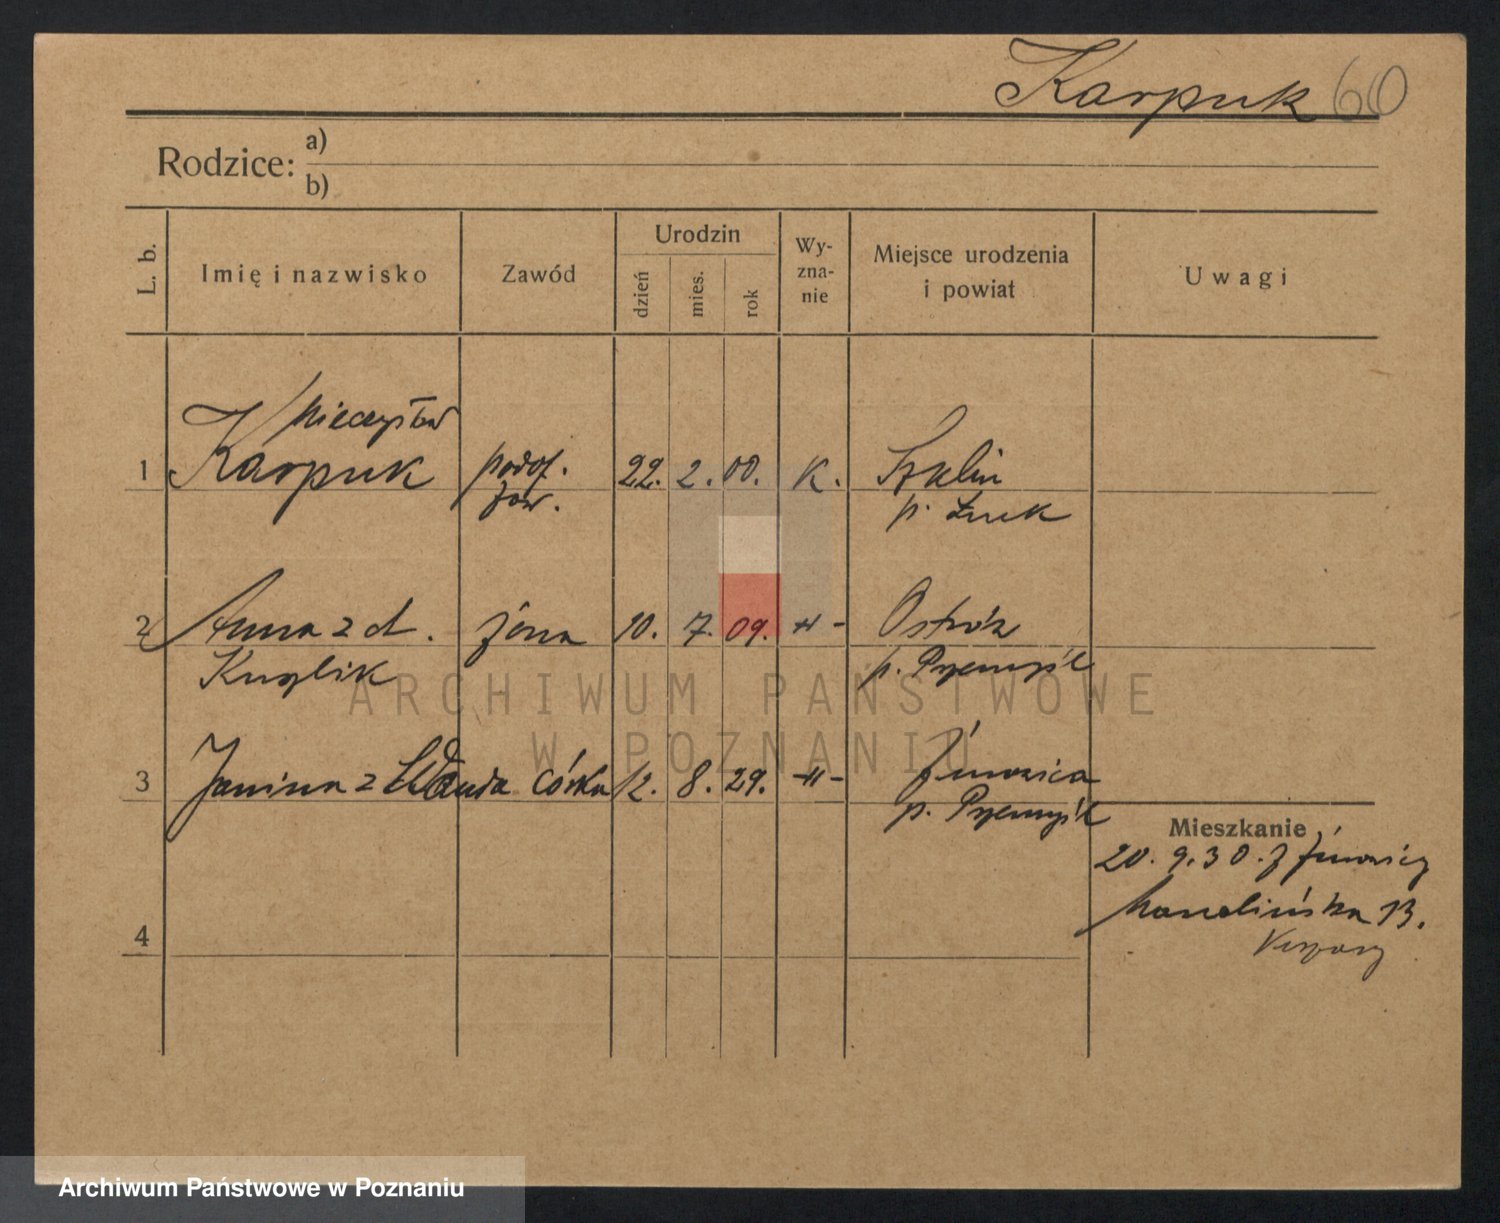 Karpuk 60
Rodzice: a)
b)
L. b.
Imię i nazwisko
Zawód
Urodzin
dzień
mies.
rok
Wy-
zna-
nie
Miejsce urodzenia
i powiat
Uwagi
Mieczysław
1 Karpuk podof. 22. 2. 00. K.
zaw.
p. Łuck
2 Anna z d. żona 10. 7. 09. -"- Ostrów
Kuglik p. Przemyśl
3 Janina z Wanda córka 12. 8. 29. -"- Żurawica
p. Przemyśl
Mieszkanie
20. 9. 30. z Żurawicy
Marcelińska 13.
4
ARCHIWUM PAŃSTWOWE
W POZNANIU
Archiwum Państwowe w Poznaniu